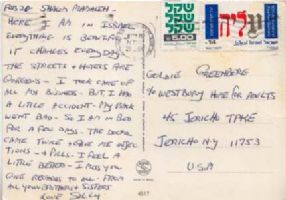 HERE I AM IN ISRAEL
EVERYTHING IS BEAUTIFUL
IT CHANGES EVERYDAY -
THE STREETS + HOTELS ARE
GORGEOUS - I TOOK CARE OF
ALL MY BUSINESS - BUT, I HAD
A LITTLE ACCIDENT - MY BACK
WENT BAD - SO I AM IN BED
FOR A FEW DAYS - THE DOCTOR
CAME TWICE + GAVE ME INJEC
TIONS + PILLS. I FEEL A
LITTLE BETTER - I MISS YOU
GIVE REGARDS TO ALL - FROM
ALL YOUR BROTHERS + SISTERS
LOVE SALLY
5.00
14
עליה
GOLDIE GREENBERG
WESTBURY HOME FOR ADULTS
JERICHO TPKE
JERICHO N.Y 11753
U.S.A